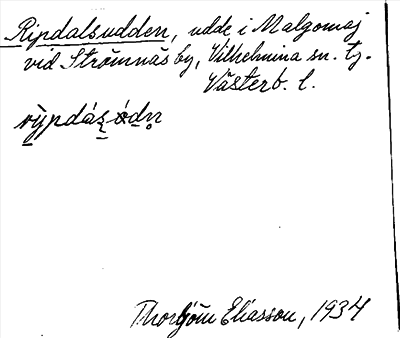 Ripdalsudden, udde i Malgomaj
vid Strömnäs by, Vilhelmina sn. tj.
Västerb. l.
Thorbjörn Eliasson, 1934